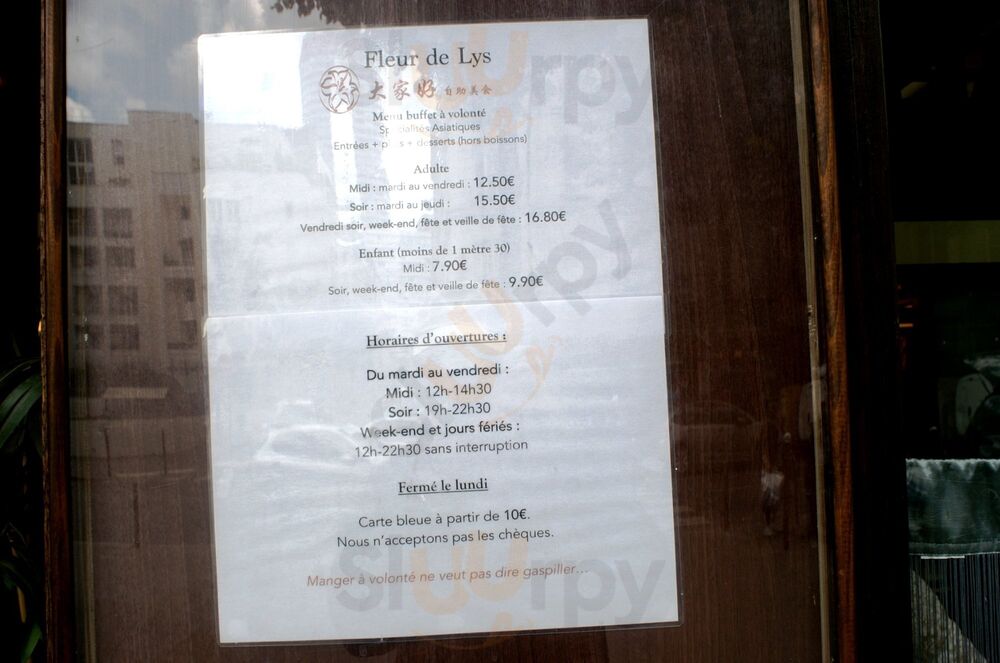 Fleur de Lys
大家好 自助美食
Menu buffet à volonté
Spécialités Asiatiques
Entrées + plats + desserts (hors boissons)
Adulte
Midi : mardi au vendredi : 12.50€
Soir : mardi au jeudi : 15.50€
Vendredi soir, week-end, fête et veille de fête : 16.80€
Enfant (moins de 1 mètre 30)
Midi : 7.90€
Soir, week-end, fête et veille de fête : 9.90€
Horaires d'ouvertures :
Du mardi au vendredi :
Midi : 12h-14h30
Soir : 19h-22h30
Week-end et jours fériés :
12h-22h30 sans interruption
Fermé le lundi
Carte bleue à partir de 10€.
Nous n'acceptons pas les chèques.
Manger à volonté ne veut pas dire gaspiller...
Sluurpy
Sluurpy
Sluurpy